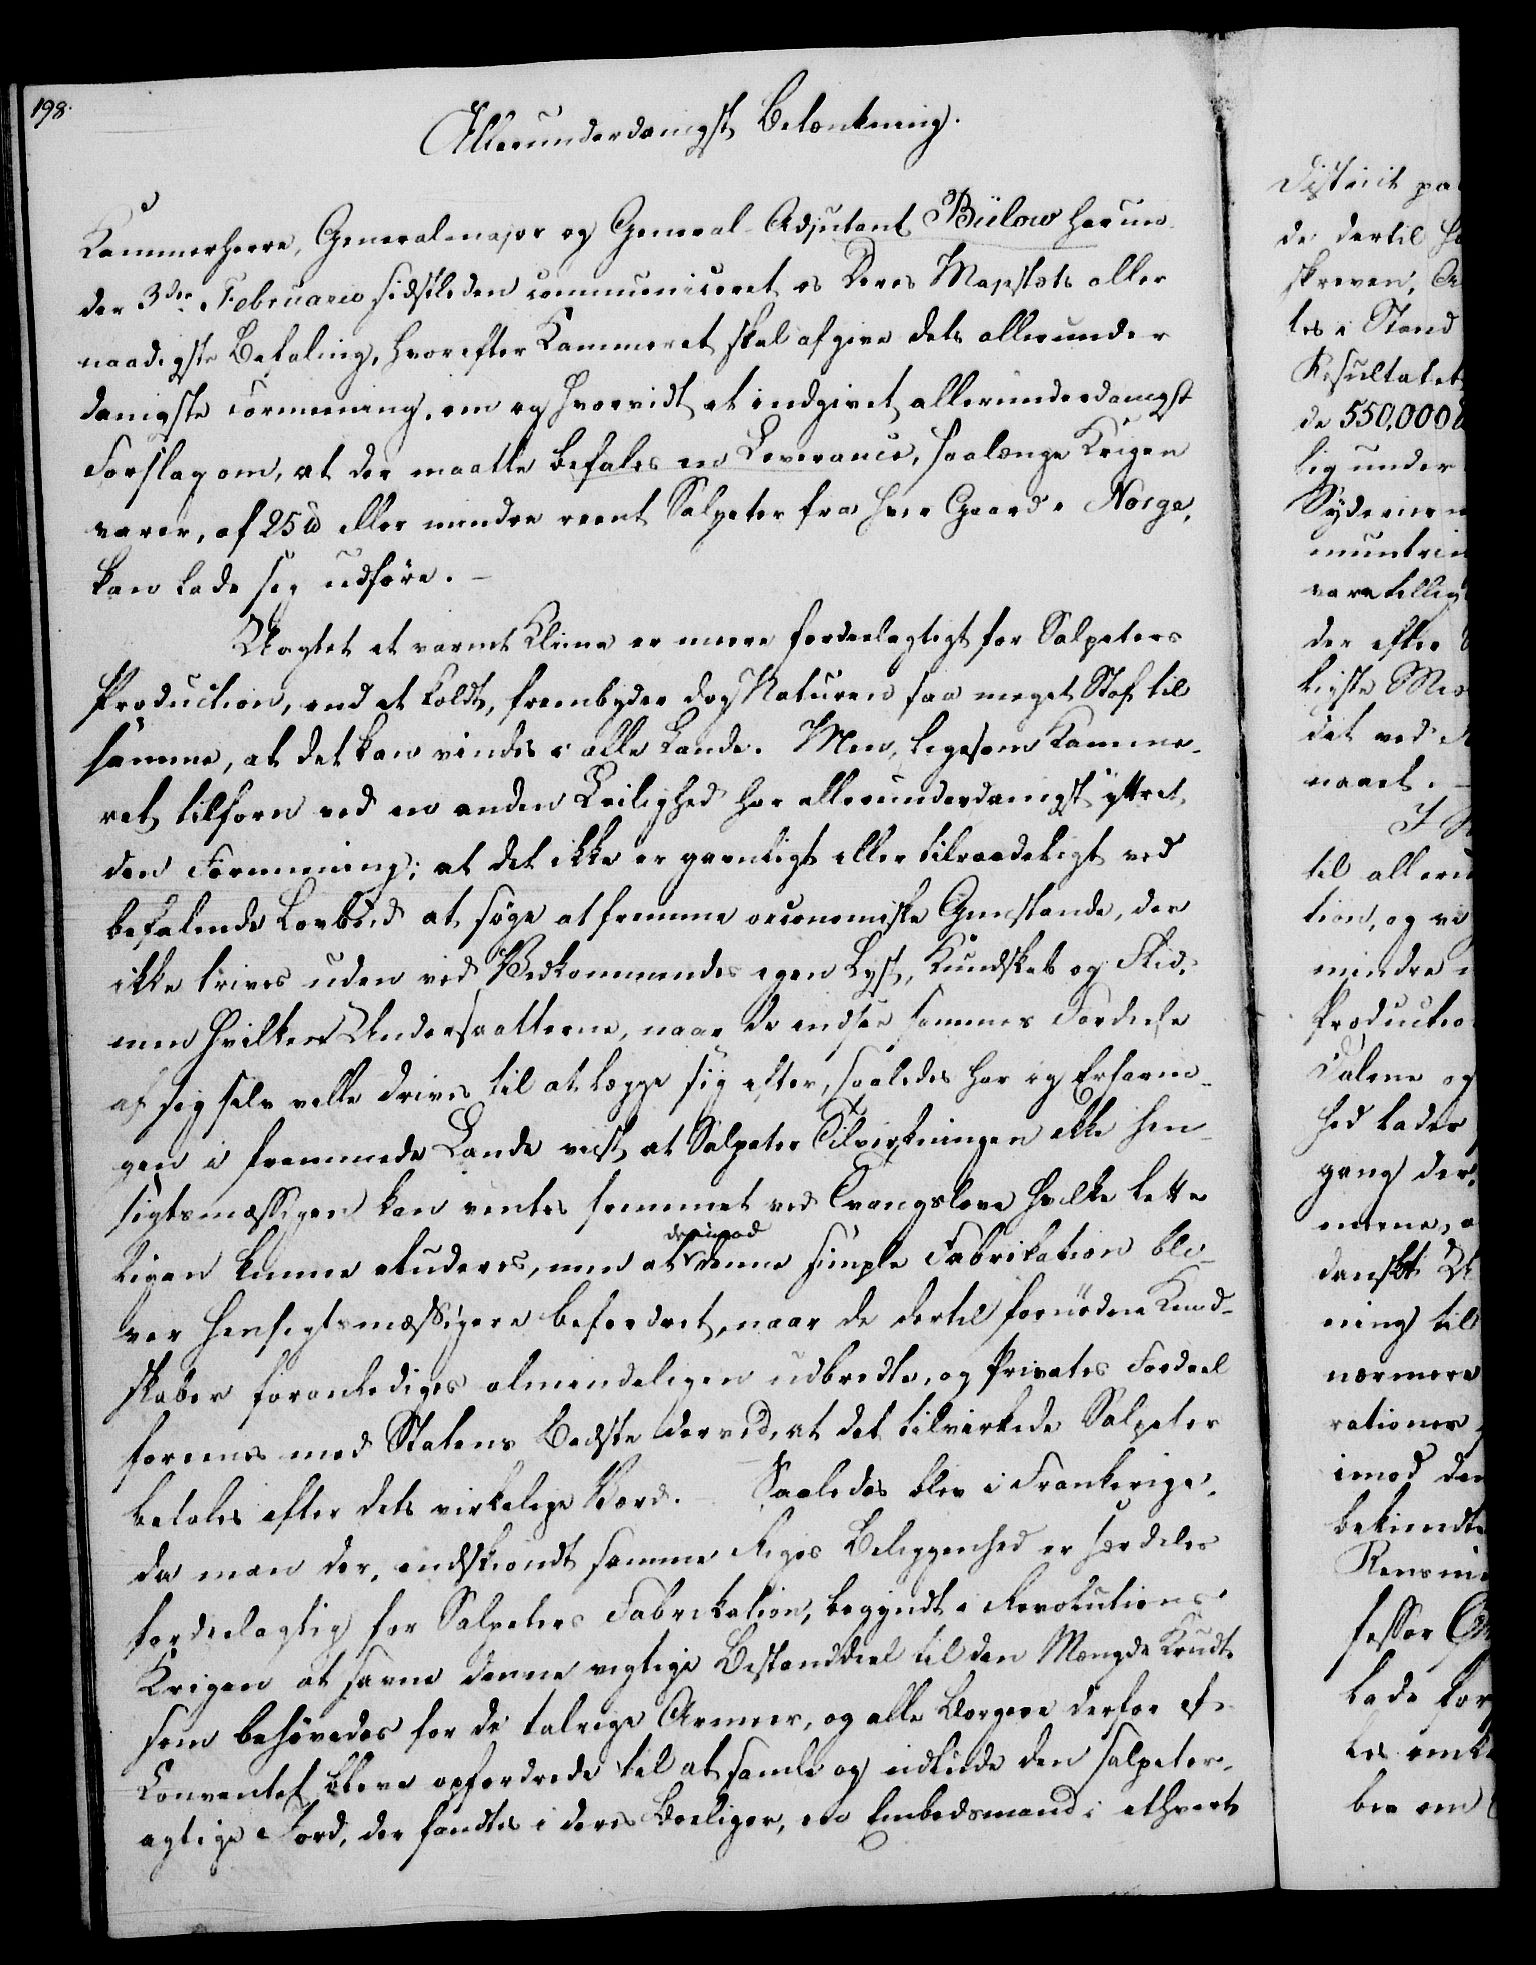 198.
Allerunderdanigst Betænkning.
Kammerherre, Generalmajor og General-Adjutant Bülow har un-
der 3die Februario sidstleden communiceret os Deres Majestæts aller
naadigste Befaling, hvorefter Kammeret skal afgive dets allerunder
danigste Formening, om og hvorvidt et indgivet allerunderdanigst
Forslag om, at der maatte befales en Leverance, saalænge Krigen
varer, af 25 ℔ eller mindre reent Salpeter fra hver Gaard i Norge,
kan lade sig udføre. –
Uagtet et varmt Klima er mere fordeelagtigt for Salpeters
Production, end et koldt, frembyder dog Naturen saa meget Stof til
samme, at det kan vindes i alle Lande. Men, ligesom Kamme-
ret tilforn ved en anden Leilighed har allerunderdanigst yttret
den Formening: at det ikke er gavnligt eller tilraadeligt ved
befalende Lovbud at søge at fremme oeconomiske Gienstande, der
ikke trives uden ved Vedkommendes egen Lyst, Kundskab og Flid,
men hvilken Undersaatterne, naar de indsee sammes Fordeele
af sig selv ville drives til at lægge sig efter, saaledes har og Erfarin-
gen i fremmede Lande viist, at Salpeter Tilvirkningen ikke hen-
sigtsmæssigen kan ventes fremmet ved Tvangslove hvilke lette
ligen kunne eluderes, men at derimod denne simple Fabrikation bli-
ver hensigtsmæssigere befordret, naar de dertil fornødne Kund-
skaber foranlediges almindeligen udbredte, og Privates Fordeel
forenes med Statens Bedste derved, at det tilvirkede Salpeter
betales efter dets virkelige Værd. – Saaledes blev i Frankerige,
da man der, endskiøndt samme Riges Beliggenhed er særdeles
fordeelagtig for Salpeters Fabrikation, begyndt i Revolutions-
Krigen at savne denne vigtige Bestanddeel til den Mængde Krudt
som behøvedes for de talrige Armeer, og alle Borgere derfor af
Conventet bleve opfordrede til at samle og udlude den salpeter-
agtige Jord, der fandtes i deres Boeliger, en Embedsmand i ethvert
District paa
de dertil
skreven,
tes i Stand
Resultatet
de 550,000 ℔
lig under
Syderne
muntrin
vare tillig
der efter
ligste
det ved
naaet. –
til allerund
tion, og
mindre
Productio
Dalene og
hed lader
gang der
mene,
danskt
ning til
nærmere
rationer
imod den
bekiendte
Rensni
fessor
lade for
les